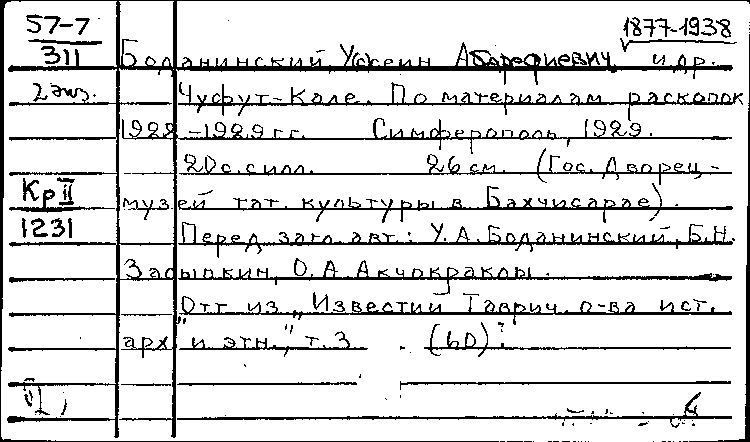 57-7 1877-1938
311 Боданинский, Усеин Абдрефиевич и др.
2 экз. Чуфут-Кале. По материалам раскопок
1928-1929 гг. Симферополь, 1929.
20 с. с илл. 26 см. (Гос. Дворец-
Кр II музей тат. культуры в Бахчисарае).
1231 Перед загл. авт.: У. А. Боданинский, Б. Н.
Засыпкин, О. А. Акчокраклы.
Отт. из „Известий Таврич. о-ва ист.
арх. и этн.", т. 3 (60).